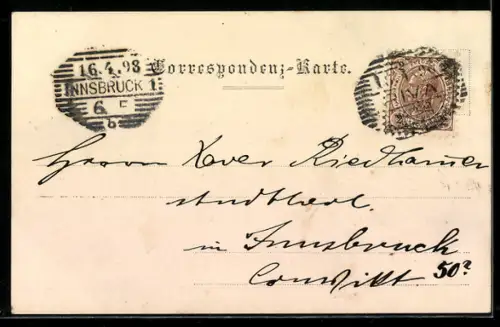 16.4.98
INNSBRUCK 1
6. F
b
Correspondenz-Karte.
Herrn Xaver Riedhamer
stud theol.
in Innsbruck
Convikt. 50?